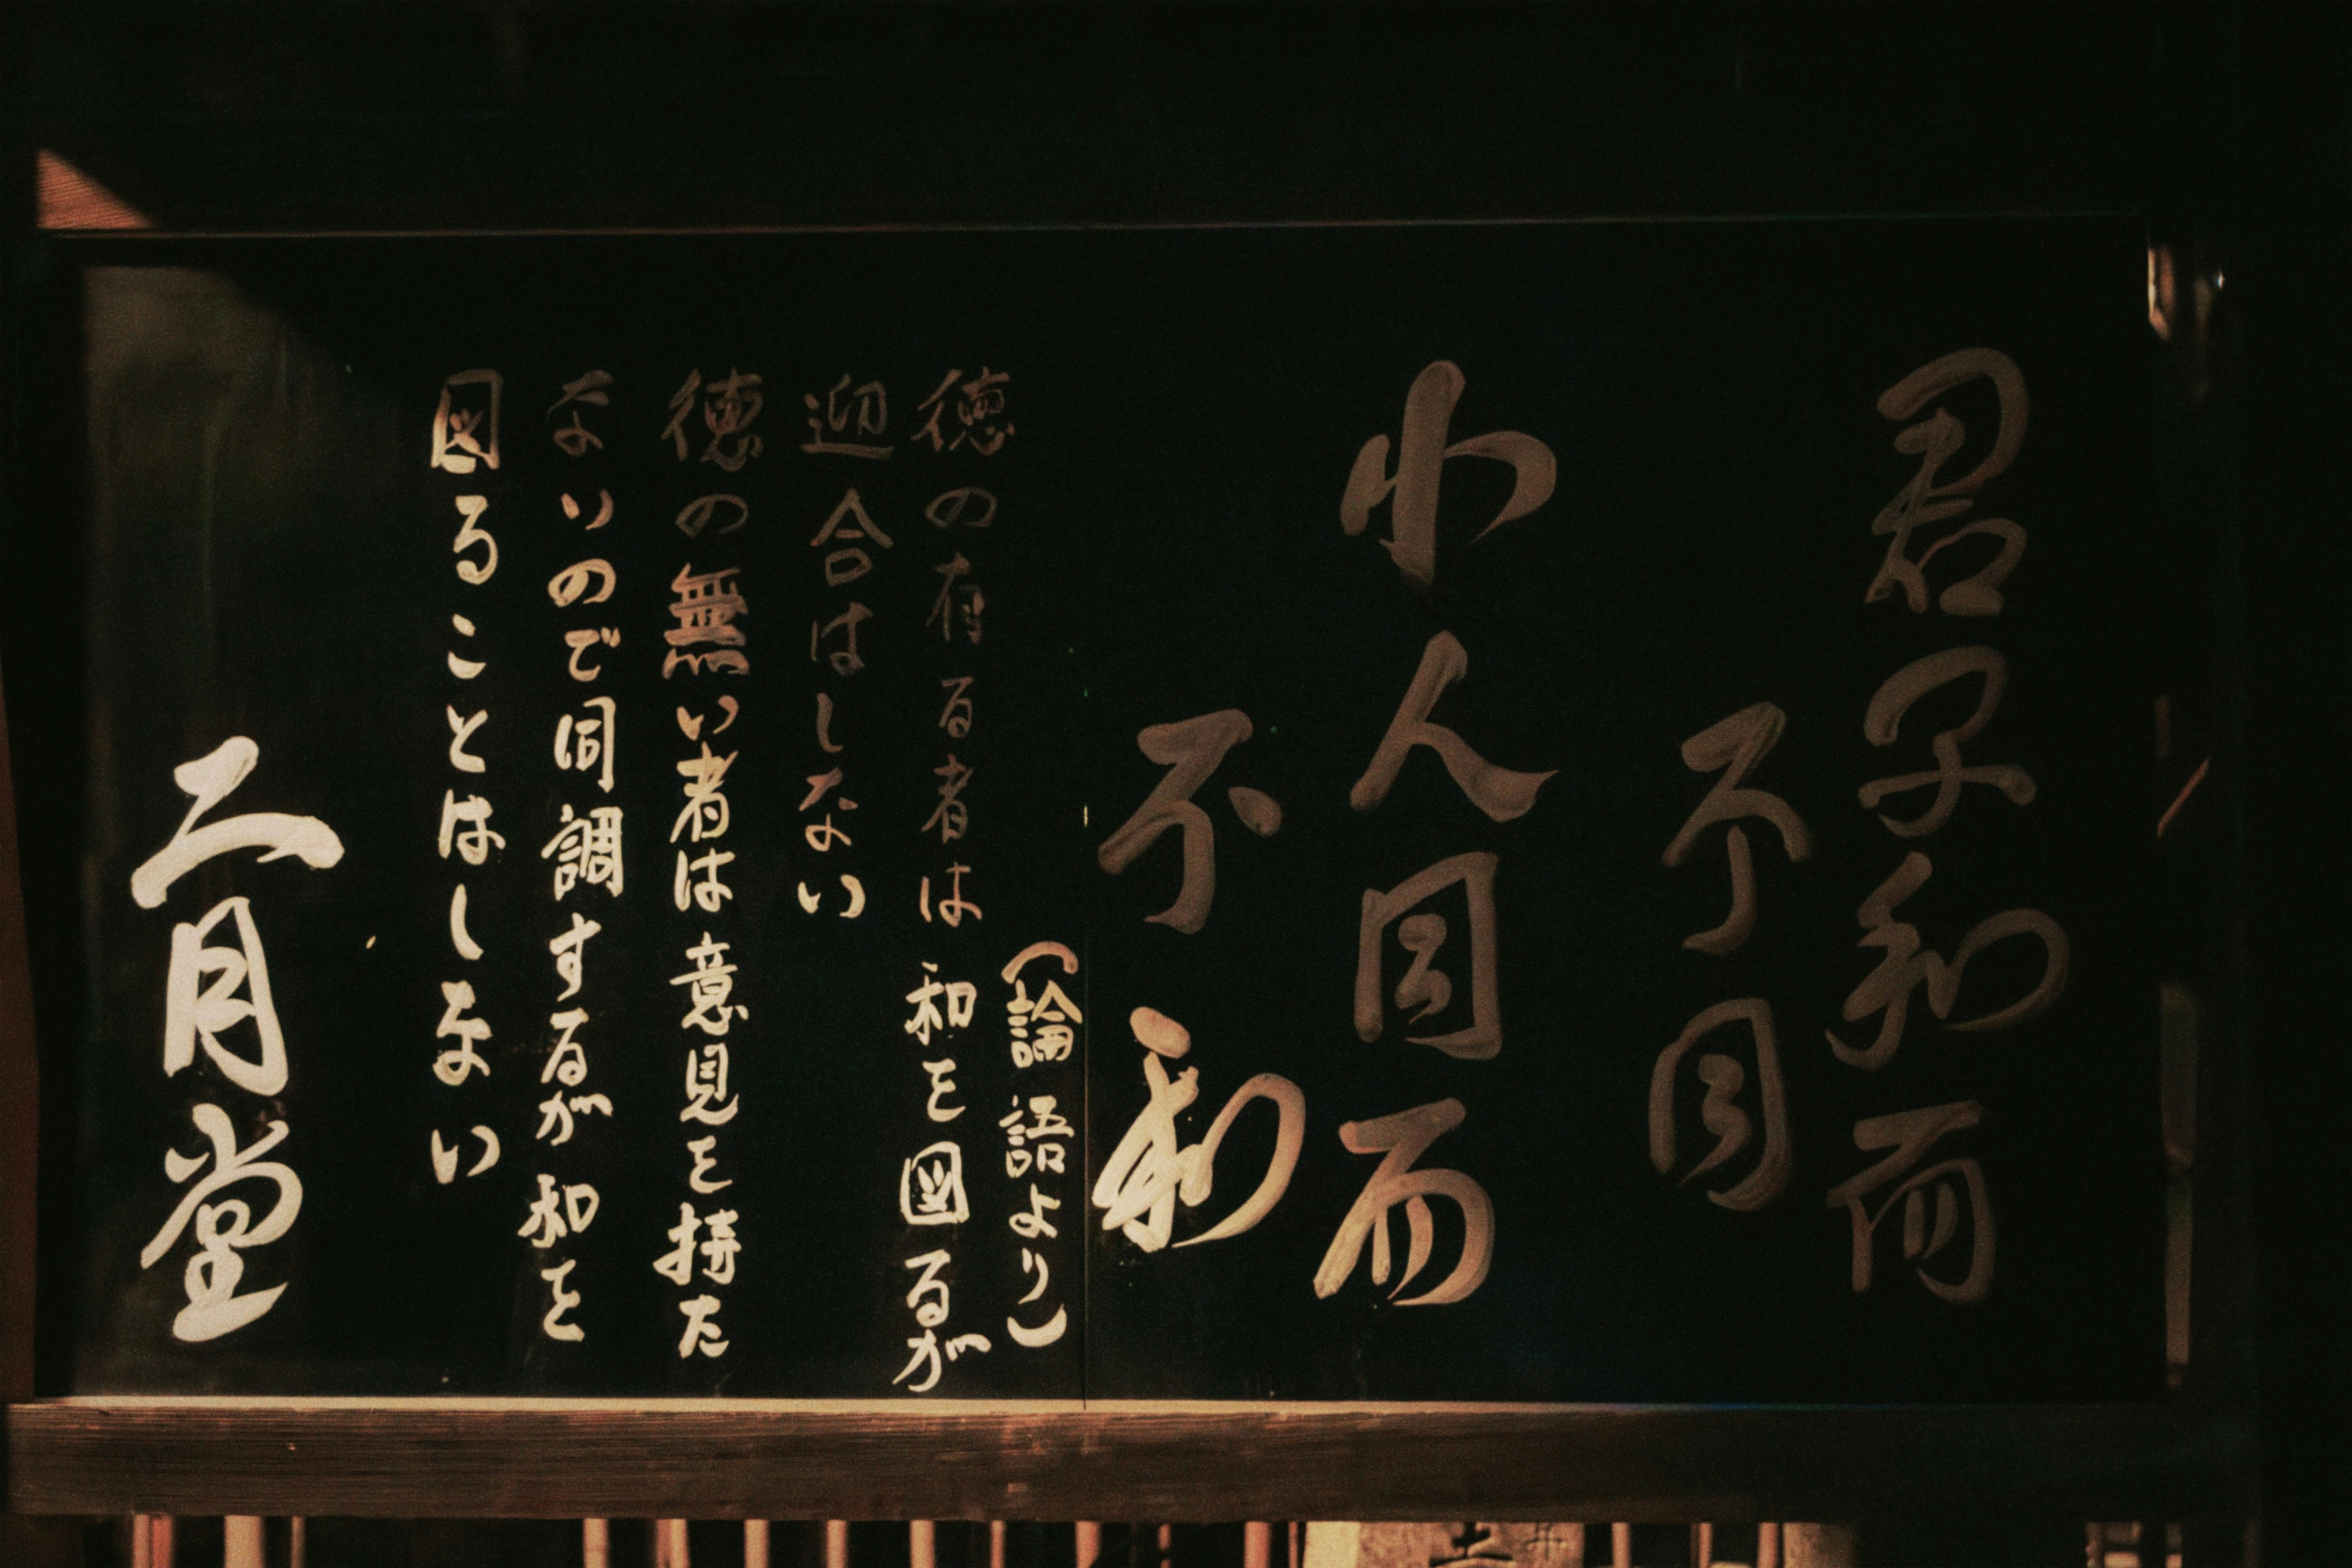 君子和而
不同
小人同而
不和
（論語より）
徳の有る者は和を図るが
迎合はしない
徳の無い者は意見を持た
ないので同調するが和を
図ることはしない
二月堂